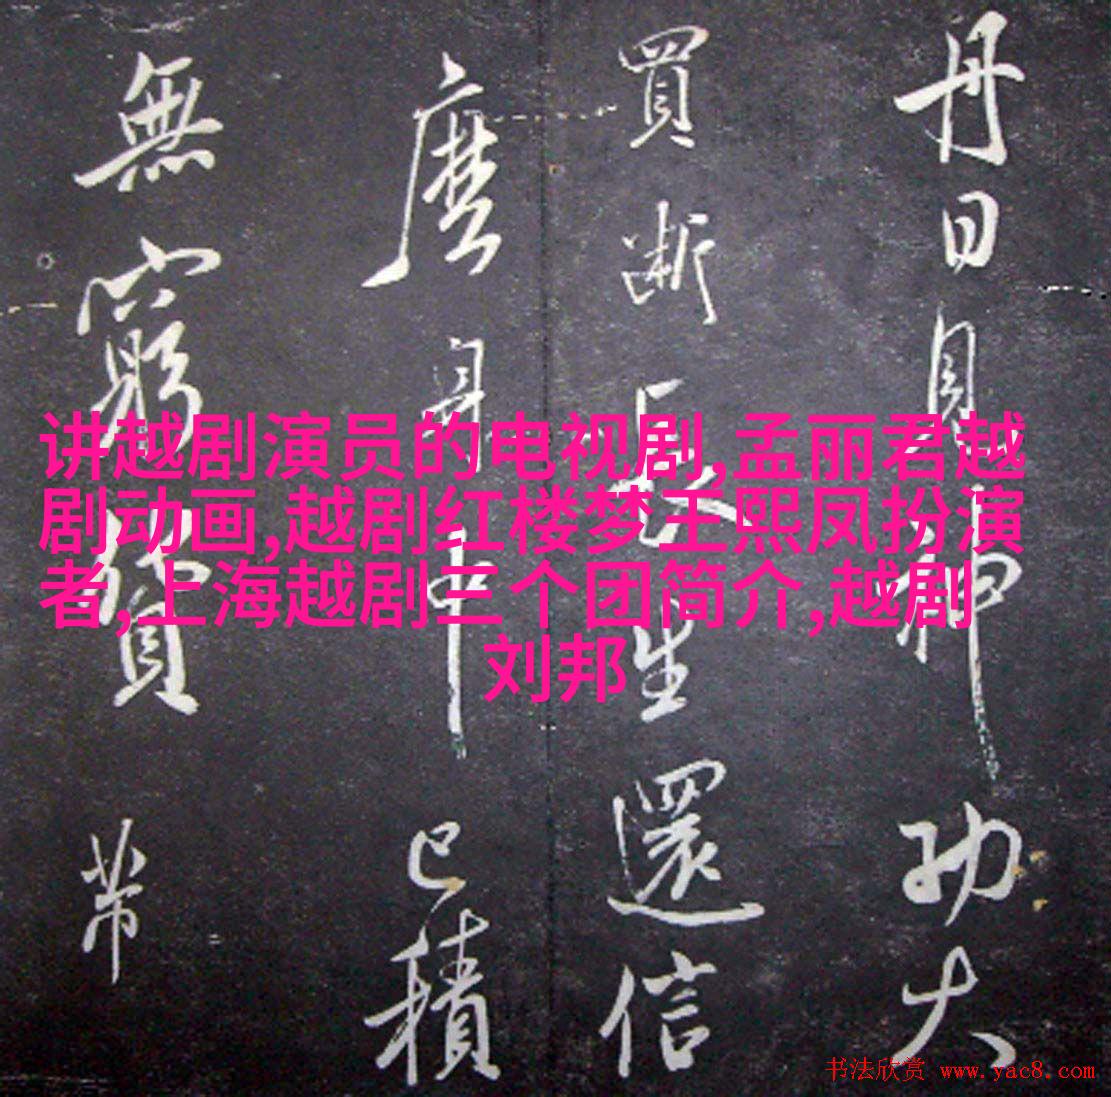 丹日月神功大
買斷長生還信
麼身中已積
無窮貨
讲越剧演员的电视剧,孟丽君越
剧动画,越剧红楼梦王熙凤扮演
者,上海越剧三个团简介,越剧
刘邦
书法欣赏 www.yac8.com